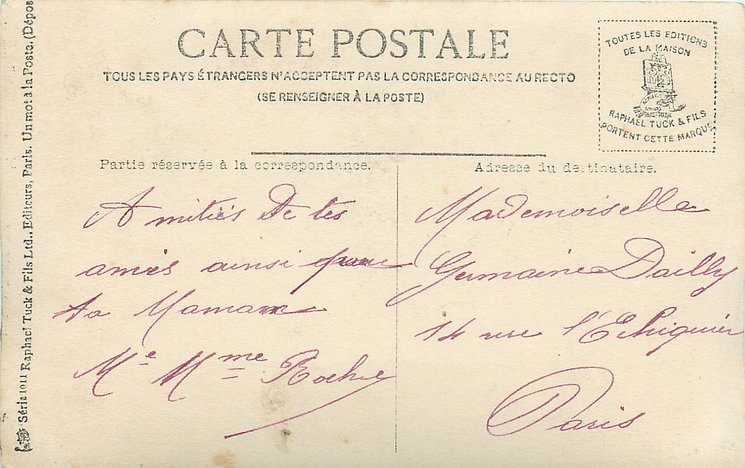 CARTE POSTALE
TOUS LES PAYS ÉTRANGERS N'ACCEPTENT PAS LA CORRESPONDANCE AU RECTO
(SE RENSEIGNER À LA POSTE)
TOUTES LES EDITIONS
DE LA MAISON
RAPHAEL TUCK & FILS
PORTENT CETTE MARQUE
Partie réservée à la correspondance.
Adresse du destinataire.
Amitiés De tes
amies ainsi que
ta Maman
Me Mme Roche
Mademoiselle
Germaine Dailly
14 rue l'Echiquier
Paris
Série 1011 Raphael Tuck & Fils Ltd., Editeurs, Paris. Un mot à la Poste. (Dépos